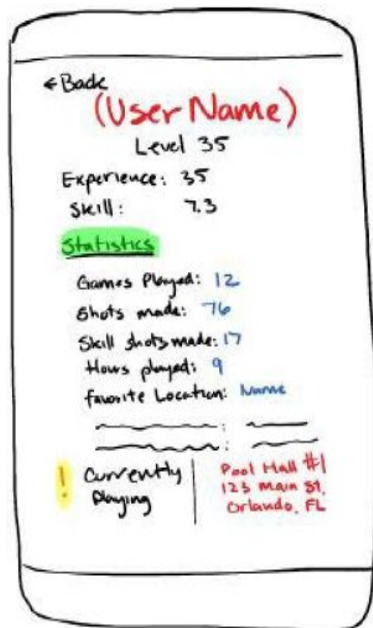 ← Back
(User Name)
Level 35
Experience: 35
Skill: 7.3
Statistics
Games Played: 12
Shots made: 76
Skill shots made: 17
Hours played: 9
favorite Location: Name
! Currently Playing
Pool Hall #1
123 Main St,
Orlando, FL